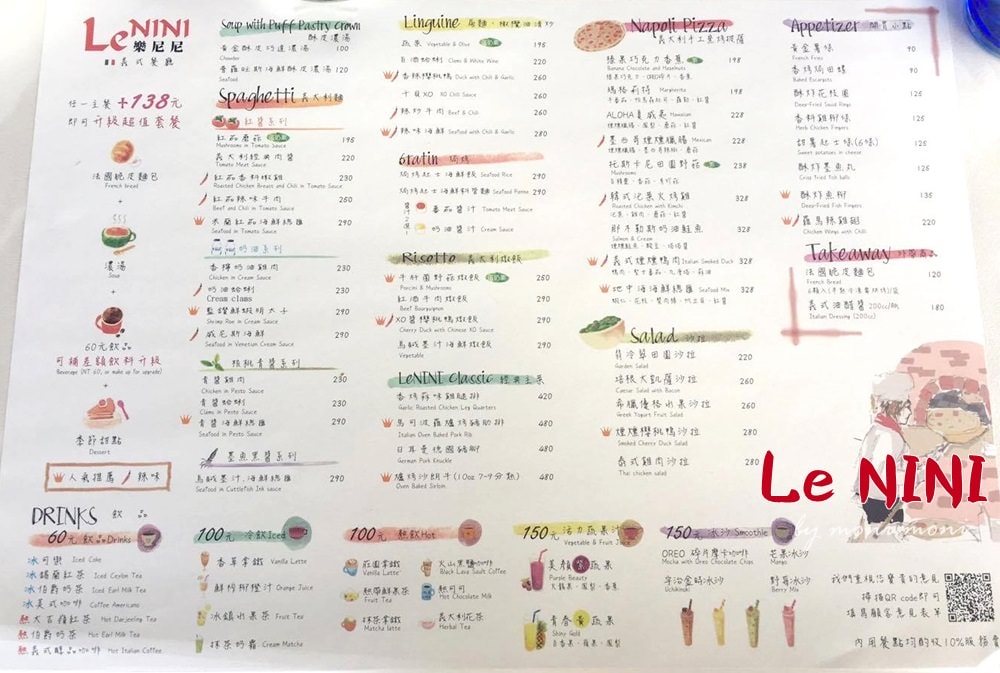 LeNINI
樂尼尼
義式餐廳
任一主餐+138元
即可升級超值套餐
法國脆皮麵包
French bread
+
濃湯
Soup
+
60元飲品
可補差額飲料升級
Beverage (NT 60, or make up for upgrade)
+
季節甜點
Dessert
人氣推薦 辣味
Soup with Puff Pastry Crown
酥皮濃湯
黃金酥皮巧達濃湯 100
Chowder
普羅旺斯海鮮酥皮濃湯 120
Seafood
Spaghetti 義大利麵
紅醬系列
紅茄蘑菇 195
Mushrooms in Tomato Sauce
義大利經典肉醬 220
Tomato Meat Sauce
紅茄香料嫩雞 230
Roasted Chicken Breast and Chili in Tomato Sauce
紅茄辣味牛肉 250
Beef and Chili in Tomato Sauce
米蘭紅茄海鮮總匯 290
Seafood in Tomato Sauce
奶油系列
香檸奶油雞肉 230
Chicken in Cream Sauce
奶油蛤蜊 230
Cream clams
藍鑽鮮蝦明太子 290
Shrimp Roe in Cream Sauce
威尼斯海鮮 290
Seafood in Venetian Cream Sauce
核桃青醬系列
青醬雞肉 230
Chicken in Pesto Sauce
青醬蛤蜊 230
Clams in Pesto Sauce
青醬海鮮總匯 290
Seafood in Pesto Sauce
墨魚黑醬系列
烏賊墨汁.海鮮總匯 290
Seafood in Cuttlefish Ink sauce
Linguine 扁麵‧橄欖油清炒
蔬菜 Vegetable & Olive 195
白酒蛤蜊 Clams & White Wine 220
香辣櫻桃鴨 Duck with Chili & Garlic 260
干貝XO XO Chili Sauce 260
辣炒牛肉 Beef & Chili 260
辣味海鮮 Seafood with Chili & Garlic 280
Gratin 焗烤
焗烤起士海鮮飯 Seafood Rice 290
焗烤起士海鮮料管麵 Seafood Penne 290
番茄醬汁 Tomato Meet Sauce
奶油醬汁 Cream Sauce
Risotto 義大利燉飯
牛肝菌野菇燉飯 260
Porcini & Mushrooms
紅酒牛肉燉飯 290
Beef Bourguignon
XO醬櫻桃鴨燉飯 290
Cherry Duck with Chinese XO Sauce
烏賊墨汁海鮮燉飯 290
Vegetable
LeNINI Classic 經典主菜
香烤蒜味雞腿排 420
Garlic Roasted Chicken Leg Quarters
馬可波羅爐烤豬肋排 480
Italian Oven Baked Pork Rib
日耳曼德國豬腳 480
German Pork Knuckle
爐烤沙朗牛(10oz 7-9分熟) 480
Oven Baked Sirloin
Napoli Pizza
義大利手工窯烤披薩
榛果巧克力香蕉 198
Banana Chocolate and Hazelnuts
瑪格莉特 Margherita 198
ALOHA夏威夷 Hawaiian 228
墨西哥煙燻臘腸 Mexican 228
托斯卡尼田園野菇 238
Mushrooms
韓式泡菜火烤雞 328
Roasted Chicken with Kimchi
那不勒斯奶油鮭魚 328
Salmon & Cream
義式煙燻鴨肉 Italian Smoked Duck 328
地中海海鮮總匯 Seafood Mix 328
Salad 沙拉
翡冷翠田園沙拉 220
Garden Salad
培根大凱薩沙拉 260
Caesar Salad with Bacon
希臘優格水果沙拉 260
Greek Yogurt Fruit Salad
煙燻櫻桃鴨沙拉 260
Smoked Cherry Duck Salad
泰式雞肉沙拉 280
Thai chicken salad
Appetizer 開胃小點
黃金薯條 90
French Fries
香烤焗田螺 90
Baked Escargots
酥炸花枝圈 125
Deep-Fried Squid Rings
香料雞柳條 125
Herb Chicken Fingers
甜薯起士球(6球) 125
Sweet potatoes in cheese
酥炸墨魚丸 125
Crisp fried fish balls
酥炸魚柳 135
Deep-Fried Fish Fingers
羅馬辣雞翅 220
Chicken Wings with Chili
Takeaway 外帶區
法國脆皮麵包 120
French Bread
義式油醋醬 200cc/瓶 180
Italian Dressing (200cc)
Le NINI
DRINKS 飲品
60元飲品Drinks
冰可樂 Iced Coke
冰錫蘭紅茶 Iced Ceylon Tea
冰伯爵奶茶 Iced Earl Milk Tea
冰美式咖啡 Coffee Americano
熱大吉嶺紅茶 Hot Darjeeling Tea
熱伯爵奶茶 Hot Earl Milk Tea
熱義式醇品咖啡 Hot Italian Coffee
100元 冷飲Iced
香草拿鐵
Vanilla Latte
鮮榨柳橙汁 Orange Juice
冰鎮水果茶 Fruit Tea
抹茶奶霜 Cream Matcha
100元 熱飲Hot
莊園拿鐵
Vanilla Latte
熱帶鮮果茶
Fruit Tea
抹茶拿鐵
Matcha latte
火山黑鹽咖啡
Black Lava Sault Coffee
熱可可
Hot Chocolate Milk
義大利花茶
Herbal Tea
150元 活力蔬果汁
Vegetable & Fruit Juice
美顏紫蔬果
Purple Beauty
青春黃蔬果
Shiny Gold
150元 冰沙Smoothie
OREO 碎片摩卡咖啡
Mocha with Oreo Chocolate Chips
芒果冰沙
Mango
宇治金時冰沙
Uchikinoki
野莓冰沙
Berry Mix
我們重視您寶貴的意見
掃描QR code即可
填寫顧客意見表單
內用餐點均酌收10%服務費